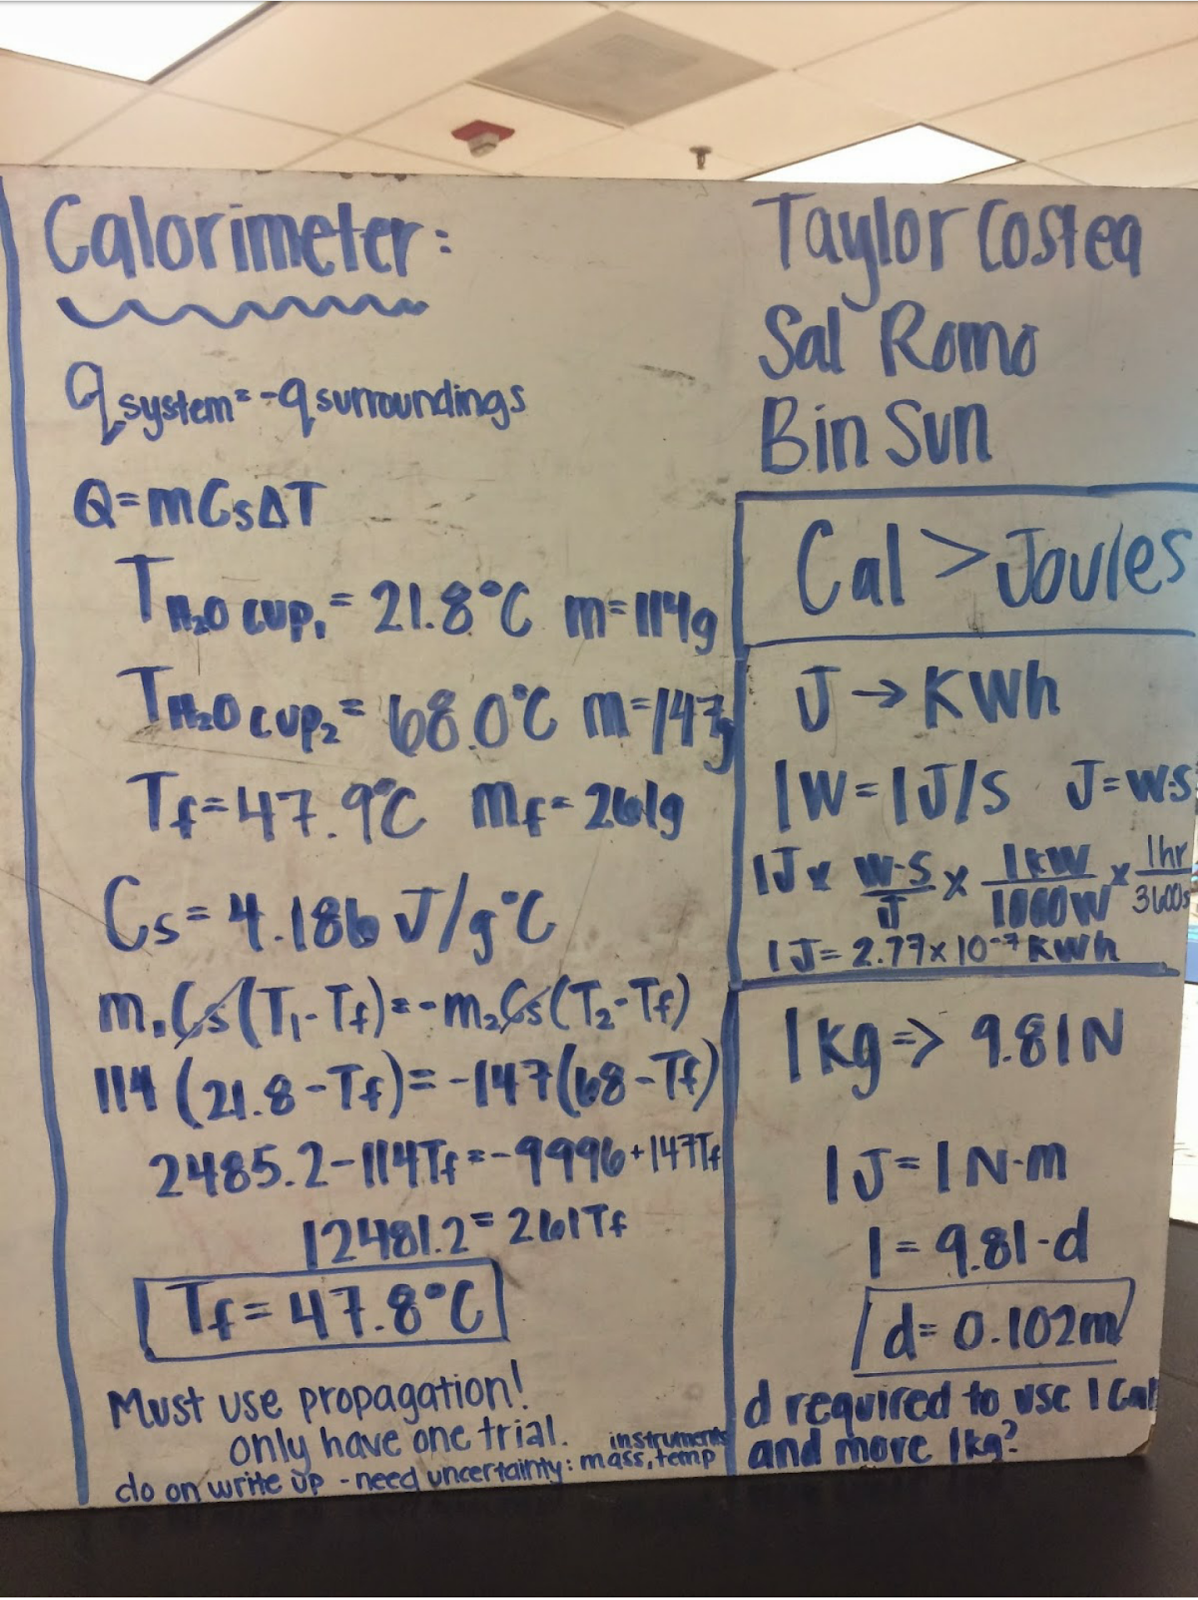 Calorimeter:
q system = -q surroundings
Q = mCsΔT
T H₂O cup₁ = 21.8°C m=114g
T H₂O cup₂ = 68.0°C m=147g
Tf = 47.9°C mf = 261g
Cs = 4.186 J/g°C
m₁Cs(T₁-Tf) = -m₂Cs(T₂-Tf)
114 (21.8-Tf) = -147(68-Tf)
2485.2-114Tf = -9996+147Tf
12481.2 = 261Tf
Tf = 47.8°C
Must use propagation!
only have one trial.
do on write up - need uncertainty: instruments mass, temp
Taylor Costea
Sal Romo
Bin Sun
Cal > Joules
J → KWh
1W = 1J/s J=W·s
1J x W·s/J x 1kW/1000W x 1hr/3600s
1J = 2.77x10⁻⁷ KWh
1kg => 9.81N
1J = 1N·m
1 = 9.81·d
d = 0.102m
d required to use 1 Cal
and move 1kg?